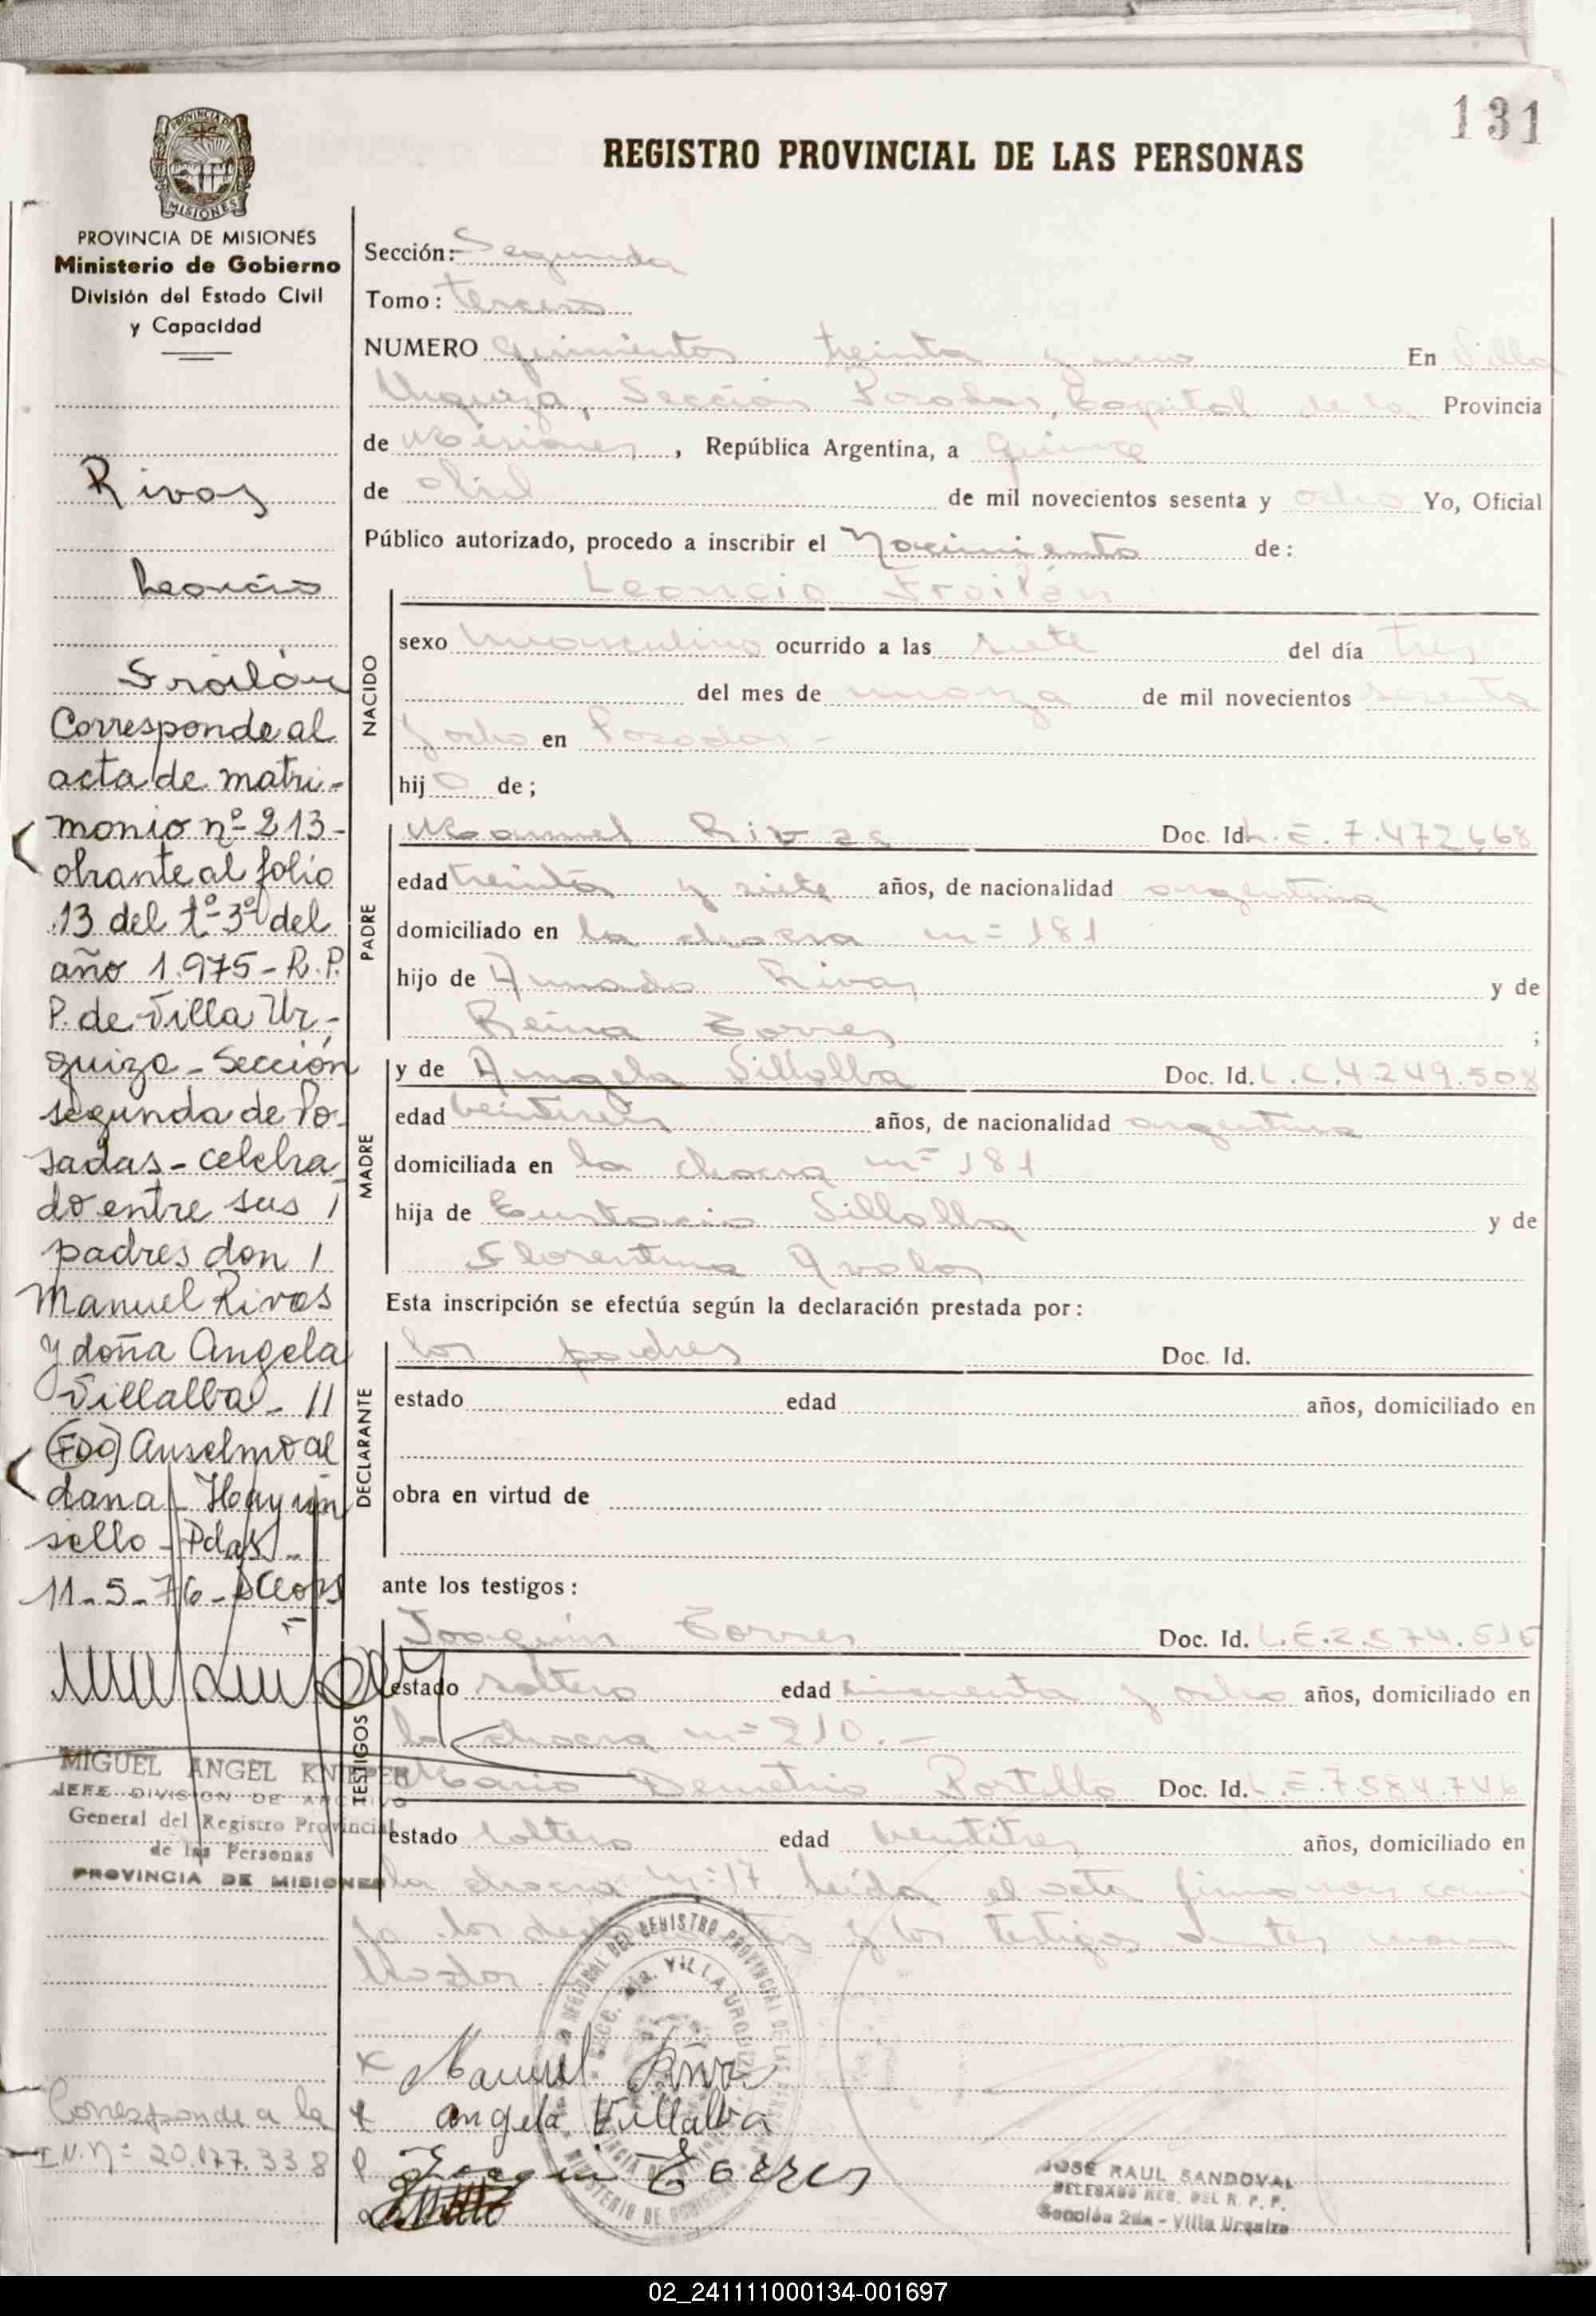 131
REGISTRO PROVINCIAL DE LAS PERSONAS
PROVINCIA DE MISIONES
PROVINCIA DE MISIONES
Ministerio de Gobierno
División del Estado Civil
y Capacidad
Rivas
Leoncio
Froilán
Corresponde al
acta de matri-
monio nº 213-
obrante al folio
13 del tº 3º del
año 1.975 - R.P.
P. de Villa Ur-
quiza - Sección
segunda de Po-
sadas - celebra
do entre sus
padres don
Manuel Rivas
y doña Angela
Villalba - //
(Fdo) Anselmo al
dana - Hay un
sello - Pdas -
11-5-76-
MIGUEL ANGEL KNIEPER
JEFE DIVISION DE ARCHIVO
General del Registro Provincial
de las Personas
PROVINCIA DE MISIONES
Corresponde a la
I.N.Nº 20.177.338
Sección: Segunda
Tomo: tercero
NUMERO quinientos treinta y uno En Villa
Urquiza, Sección Posadas, Capital de la Provincia
de Misiones, República Argentina, a quince
de abril de mil novecientos sesenta y ocho Yo, Oficial
Público autorizado, procedo a inscribir el Nacimiento de:
NACIDO
Leoncio Froilán
sexo masculino ocurrido a las siete del día tres
del mes de marzo de mil novecientos sesenta
y ocho en Posadas -
hijo de;
PADRE
Manuel Rivas Doc. Id. L.E. 7.472.668
edad treinta y siete años, de nacionalidad argentina
domiciliado en la chacra nº 181
hijo de Amado Rivas y de
Reina Torres ;
MADRE
y de Angela Villalba Doc. Id. L.C. 4.249.508
edad veintiseis años, de nacionalidad argentina
domiciliada en la chacra nº 181
hija de Eustacio Villalba y de
Florentina Avalos
Esta inscripción se efectúa según la declaración prestada por:
DECLARANTE
los padres Doc. Id.
estado edad años, domiciliado en
obra en virtud de
ante los testigos:
TESTIGOS
Joaquin Torres Doc. Id. L.E. 2.574.516
estado soltero edad cincuenta y ocho años, domiciliado en
la chacra nº 210.-
Mario Demetrio Portillo Doc. Id. L.E. 7.584.746
estado soltero edad veintitres años, domiciliado en
la chacra nº 17. leída el acta firmaron conmi
go los declarantes y los testigos antes nom
brados.
x Manuel Riva
x angela Villalba
Joaquin Torres
JOSE RAUL SANDOVAL
DELEGADO REG. DEL R. P. P.
Sección 2da - Villa Urquiza
02_241111000134-001697